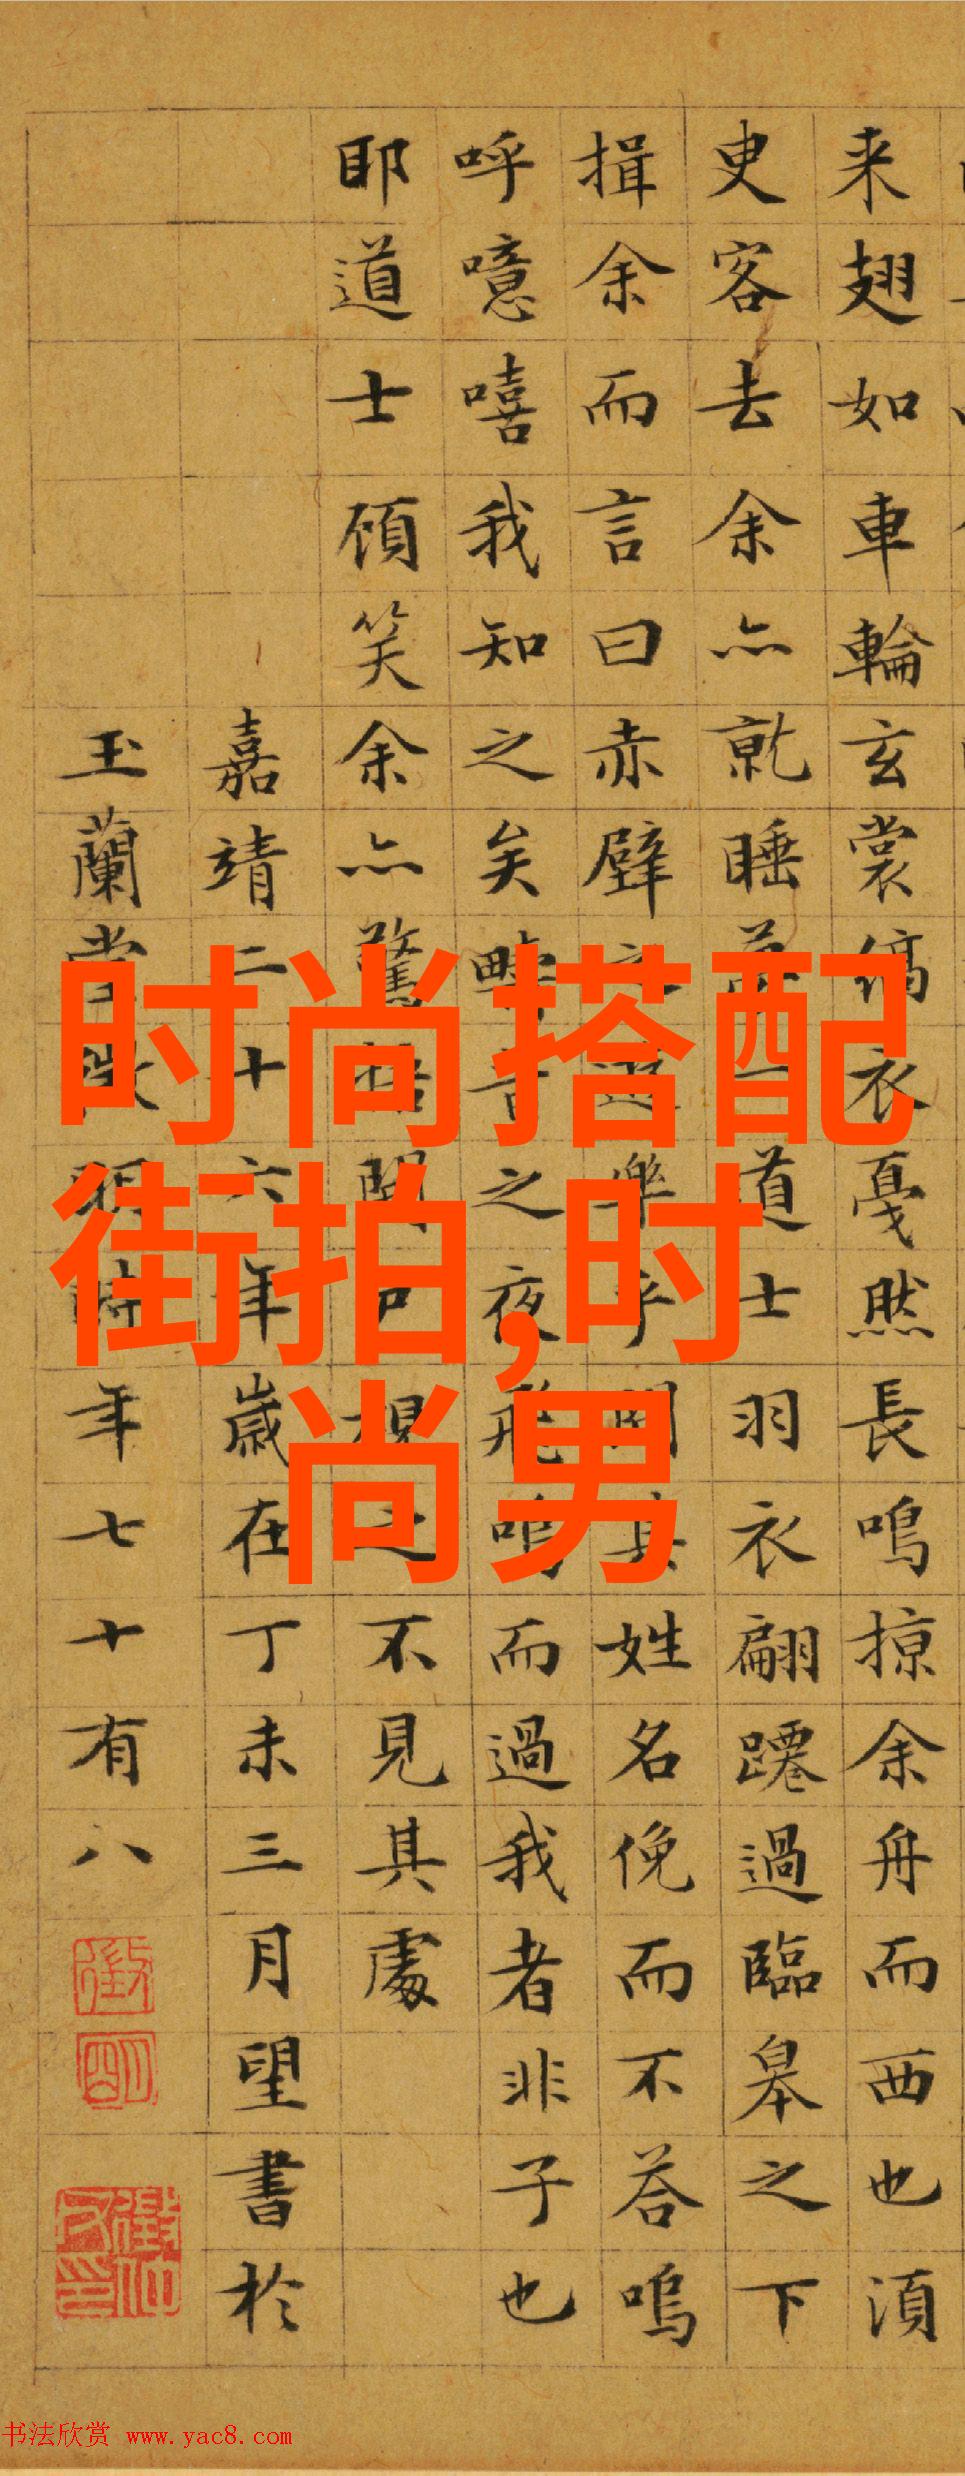 来翅如車輪玄裳縞衣戞然長鳴掠余舟而西也須
臾客去余亦就睡夢一道士羽衣翩躚過臨皋之下
揖余而言曰赤壁之遊樂乎問其姓名俛而不荅嗚
呼噫嘻我知之矣疇昔之夜飛鳴而過我者非子也
耶道士顧笑余亦驚悟開戶視之不見其處
嘉靖二十六年歲在丁未三月望書於
玉蘭堂徵明時年七十有八
时尚搭配
街拍,时
尚男
徵
明
书法欣赏 www.yac8.com